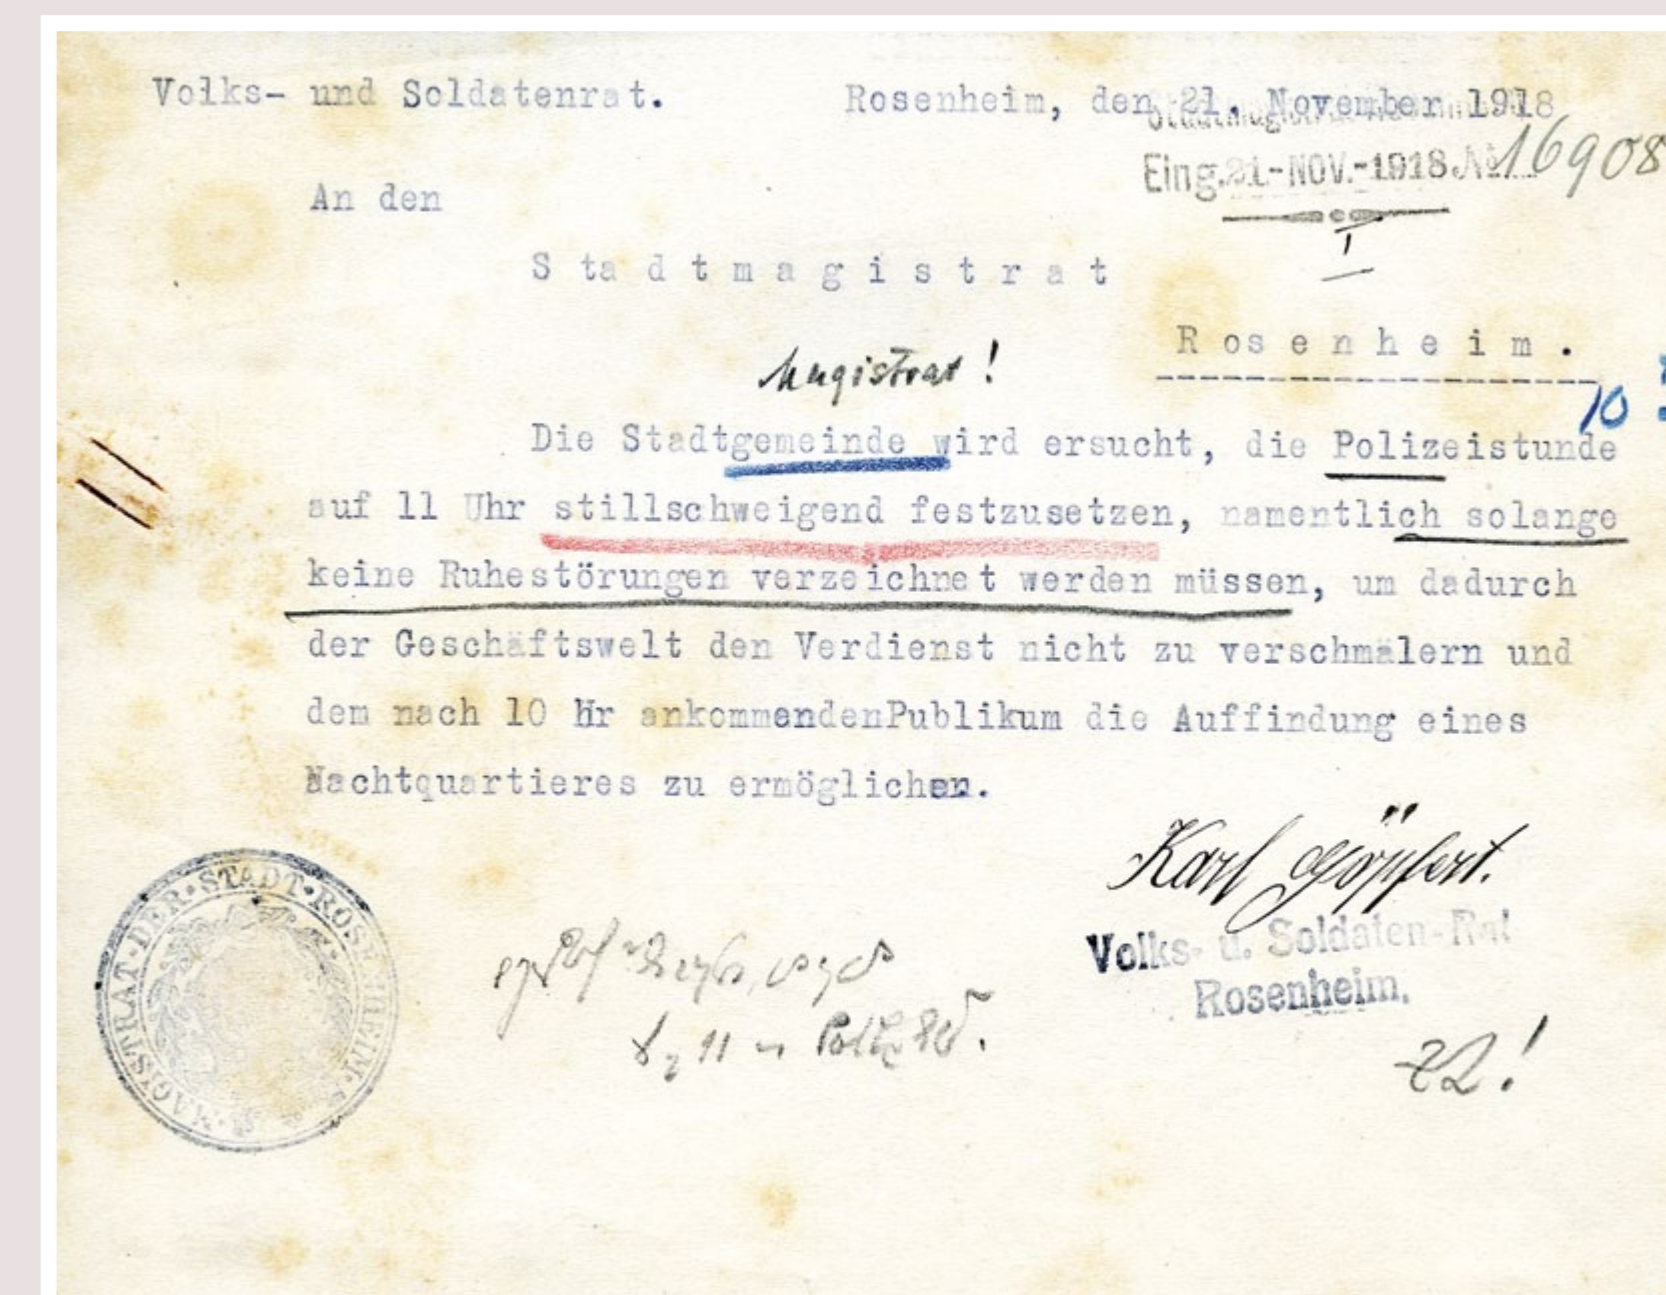 Volks- und Soldatenrat. Rosenheim, den 21. November 1918
Eing. 21-NOV.-1918 № 16908
I
An den
Stadtmagistrat
Rosenheim.
Magistrat!
10
Die Stadtgemeinde wird ersucht, die Polizeistunde
auf 11 Uhr stillschweigend festzusetzen, namentlich solange
keine Ruhestörungen verzeichnet werden müssen, um dadurch
der Geschäftswelt den Verdienst nicht zu verschmälern und
dem nach 10 Hr ankommendenPublikum die Auffindung eines
Nachtquartieres zu ermöglichen.
Karl Göpfert.
Volks- u. Soldaten-Rat
Rosenheim.
MAGISTRAT·DER·STADT·ROSENHEIM·